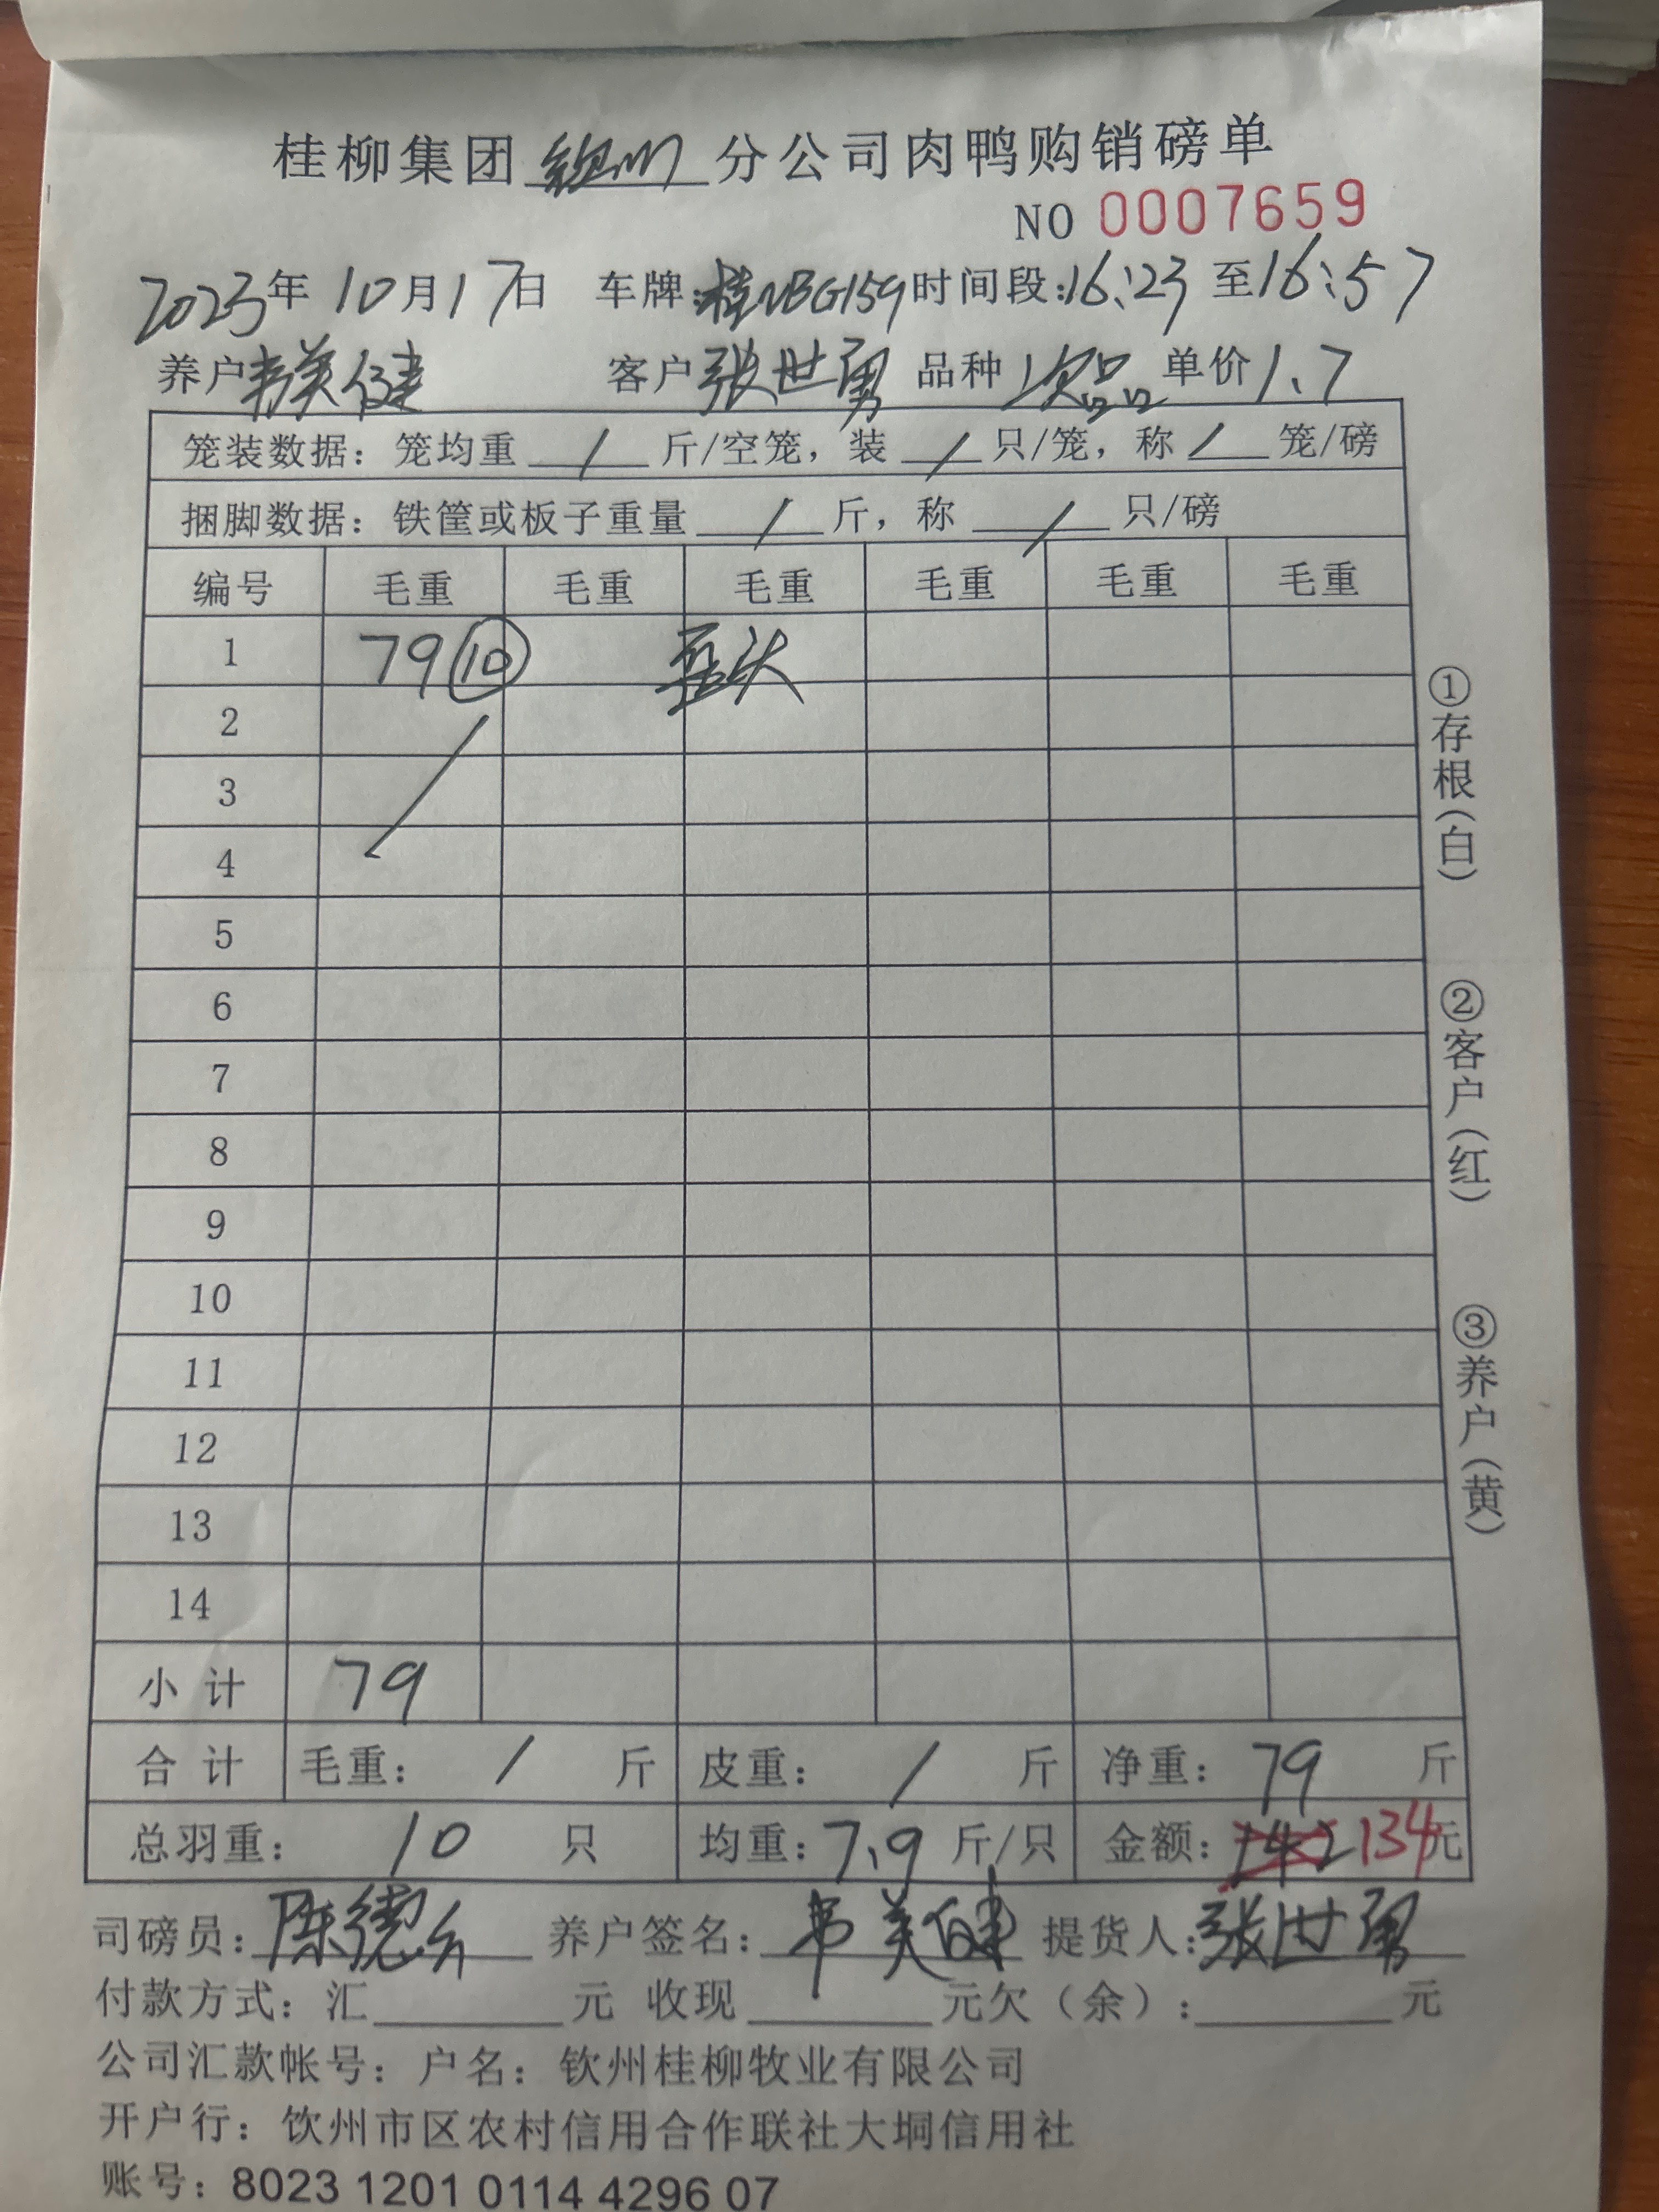 桂柳集团钦州分公司肉鸭购销磅单
NO 0007659
2023年10月17日 车牌:桂NBG159时间段:16:23至16:57
养户韦美健 客户张世勇 品种次品单价1.7
笼装数据:笼均重 / 斤/空笼,装 / 只/笼,称 / 笼/磅
捆脚数据:铁筐或板子重量 / 斤,称 / 只/磅
编号 毛重 毛重 毛重 毛重 毛重 毛重
1 79 ⑩ 歪头
2
3
4
5
6
7
8
9
10
11
12
13
14
小计 79
合计 毛重: / 斤 皮重: / 斤 净重:79斤
总羽重:10只 均重:7.9斤/只 金额:142 134元
司磅员:陈德 养户签名:韦美健 提货人:张世勇
付款方式:汇 元 收现 元欠(余): 元
公司汇款帐号:户名:钦州桂柳牧业有限公司
开户行:钦州市区农村信用合作联社大垌信用社
账号:8023 1201 0114 4296 07
①存根(白)
②客户(红)
③养户(黄)